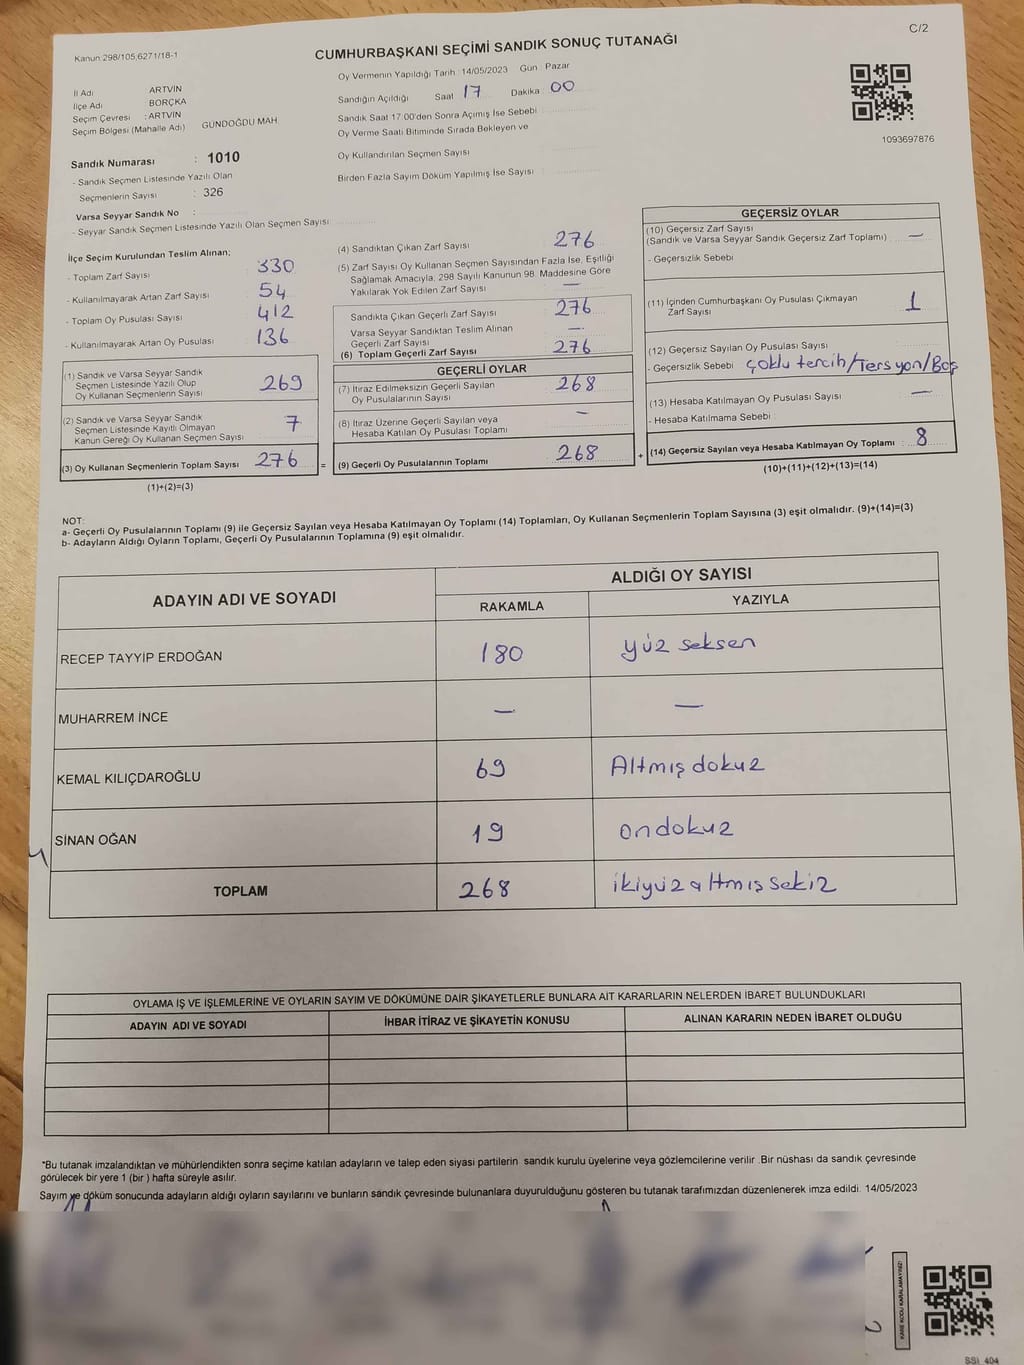 C/2
Kanun:298/105,6271/18-1
CUMHURBAŞKANI SEÇİMİ SANDIK SONUÇ TUTANAĞI
İl Adı ARTVİN
İlçe Adı BORÇKA
Seçim Çevresi : ARTVİN
Seçim Bölgesi (Mahalle Adı) GÜNDOĞDU MAH
Sandık Numarası : 1010
- Sandık Seçmen Listesinde Yazılı Olan
Seçmenlerin Sayısı : 326
Varsa Seyyar Sandık No :
- Seyyar Sandık Seçmen Listesinde Yazılı Olan Seçmen Sayısı
Oy Vermenin Yapıldığı Tarih : 14/05/2023 Gün : Pazar
Sandığın Açıldığı Saat 17 Dakika : 00
Sandık Saat 17:00'den Sonra Açımış İse Sebebi
Oy Verme Saati Bitiminde Sırada Bekleyen ve
Oy Kullandırılan Seçmen Sayısı
Birden Fazla Sayım Döküm Yapılmış İse Sayısı
1093697876
İlçe Seçim Kurulundan Teslim Alınan;
- Toplam Zarf Sayısı 330
- Kullanılmayarak Artan Zarf Sayısı 54
- Toplam Oy Pusulası Sayısı 412
- Kullanılmayarak Artan Oy Pusulası 136
(1) Sandık ve Varsa Seyyar Sandık
Seçmen Listesinde Yazılı Olup
Oy Kullanan Seçmenlerin Sayısı 269
(2) Sandık ve Varsa Seyyar Sandık
Seçmen Listesinde Kayıtlı Olmayan
Kanun Gereği Oy Kullanan Seçmen Sayısı 7
(3) Oy Kullanan Seçmenlerin Toplam Sayısı 276 =
(1)+(2)=(3)
(4) Sandıktan Çıkan Zarf Sayısı 276
(5) Zarf Sayısı Oy Kullanan Seçmen Sayısından Fazla İse, Eşitliği
Sağlamak Amacıyla; 298 Sayılı Kanunun 98. Maddesine Göre
Yakılarak Yok Edilen Zarf Sayısı —
Sandıkta Çıkan Geçerli Zarf Sayısı 276
Varsa Seyyar Sandıktan Teslim Alınan
Geçerli Zarf Sayısı —
(6) Toplam Geçerli Zarf Sayısı 276
GEÇERLİ OYLAR
(7) İtiraz Edilmeksizin Geçerli Sayılan
Oy Pusulalarının Sayısı 268
(8) İtiraz Üzerine Geçerli Sayılan veya
Hesaba Katılan Oy Pusulası Toplamı —
(9) Geçerli Oy Pusulalarının Toplamı 268 +
GEÇERSİZ OYLAR
(10) Geçersiz Zarf Sayısı
(Sandık ve Varsa Seyyar Sandık Geçersiz Zarf Toplamı) —
- Geçersizlik Sebebi
(11) İçinden Cumhurbaşkanı Oy Pusulası Çıkmayan
Zarf Sayısı 1
(12) Geçersiz Sayılan Oy Pusulası Sayısı
- Geçersizlik Sebebi çoklu tercih/Ters yon/Boş
(13) Hesaba Katılmayan Oy Pusulası Sayısı —
- Hesaba Katılmama Sebebi :
(14) Geçersiz Sayılan veya Hesaba Katılmayan Oy Toplamı : 8
(10)+(11)+(12)+(13)=(14)
NOT:
a- Geçerli Oy Pusulalarının Toplamı (9) ile Geçersiz Sayılan veya Hesaba Katılmayan Oy Toplamı (14) Toplamları, Oy Kullanan Seçmenlerin Toplam Sayısına (3) eşit olmalıdır. (9)+(14)=(3)
b- Adayların Aldığı Oyların Toplamı, Geçerli Oy Pusulalarının Toplamına (9) eşit olmalıdır.
ADAYIN ADI VE SOYADI ALDIĞI OY SAYISI
RAKAMLA YAZIYLA
RECEP TAYYİP ERDOĞAN 180 yüz seksen
MUHARREM İNCE — —
KEMAL KILIÇDAROĞLU 69 Altmış dokuz
SİNAN OĞAN 19 ondokuz
TOPLAM 268 ikiyüz altmış sekiz
OYLAMA İŞ VE İŞLEMLERİNE VE OYLARIN SAYIM VE DÖKÜMÜNE DAİR ŞİKAYETLERLE BUNLARA AİT KARARLARIN NELERDEN İBARET BULUNDUKLARI
ADAYIN ADI VE SOYADI İHBAR İTİRAZ VE ŞİKAYETİN KONUSU ALINAN KARARIN NEDEN İBARET OLDUĞU
*Bu tutanak imzalandıktan ve mühürlendikten sonra seçime katılan adayların ve talep eden siyasi partilerin sandık kurulu üyelerine veya gözlemcilerine verilir .Bir nüshası da sandık çevresinde
görülecek bir yere 1 (bir ) hafta süreyle asılır.
Sayım ve döküm sonucunda adayların aldığı oyların sayılarını ve bunların sandık çevresinde bulunanlara duyurulduğunu gösteren bu tutanak tarafımızdan düzenlenerek imza edildi. 14/05/2023
KARE KODU KARALAMAYINIZ!
SSİ 404